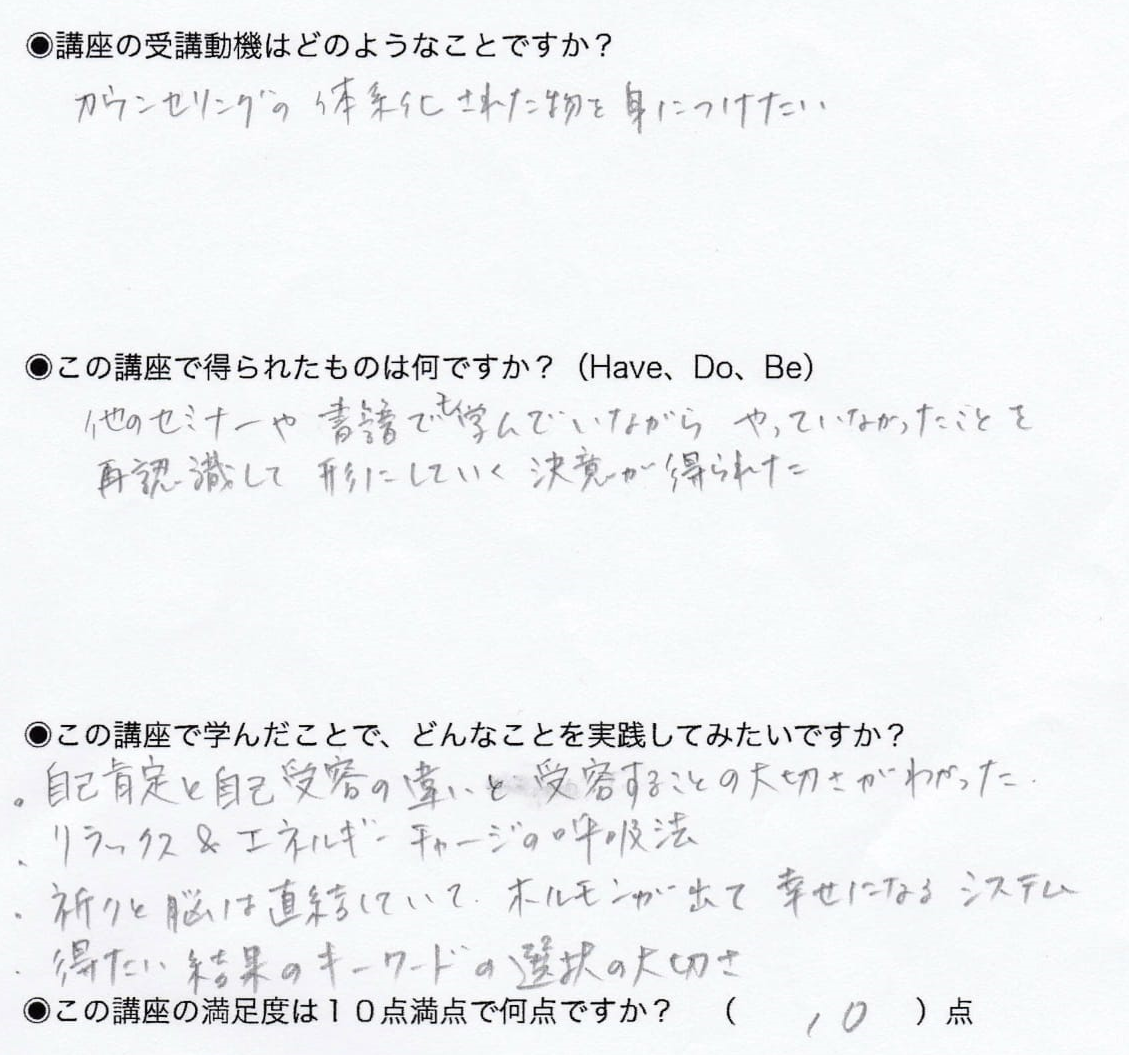 ◉講座の受講動機はどのようなことですか？
カウンセリングの 体系化 された物を 身につけたい
◉この講座で得られたものは何ですか？（Have、Do、Be）
他のセミナーや 書籍でも学んでいながら やっていなかったことを
再認識して 形にしていく 決意が 得られた
◉この講座で学んだことで、どんなことを実践してみたいですか？
。自己肯定と自己受容の違いと 受容することの大切さがわかった.
、リラックス & エネルギーチャージの呼吸法
・祈りと脳は直結していて. ホルモンが出て 幸せになる システム
・得たい 結果のキーワードの選択の大切さ
◉この講座の満足度は１０点満点で何点ですか？ （ 10 ）点